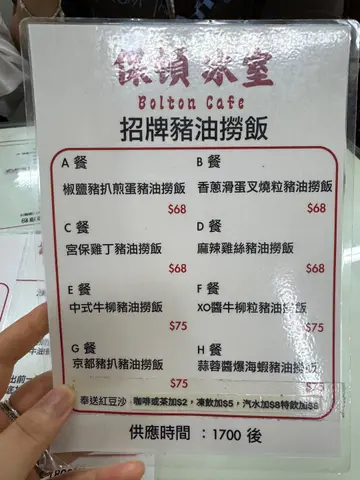 保頓冰室
Bolton Cafe
招牌豬油撈飯
A 餐
椒鹽豬扒煎蛋豬油撈飯
$68
B 餐
香蔥滑蛋叉燒粒豬油撈飯
$68
C 餐
宮保雞丁豬油撈飯
$68
D 餐
麻辣雞絲豬油撈飯
$68
E 餐
中式牛柳豬油撈飯
$75
F 餐
XO醬牛柳粒豬油撈飯
$75
G 餐
京都豬扒豬油撈飯
$75
H 餐
蒜蓉醬爆海蝦豬油撈飯
$75
奉送紅豆沙 咖啡或茶加$2，凍飲加$5，汽水加$8特飲加$8
供應時間 ：1700 後